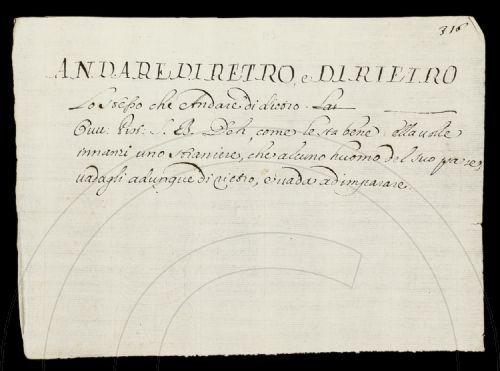 316
ANDARE DI RETRO, e DI RIETRO
Lo stesso che Andare di dietro. Lat
Guu. Pist. S. B. Deh, come le sta bene ella vole
innanzi uno straniere, che alcuno huomo del suo paese,
vadagli adunque di rietro, e vada ad imparare.